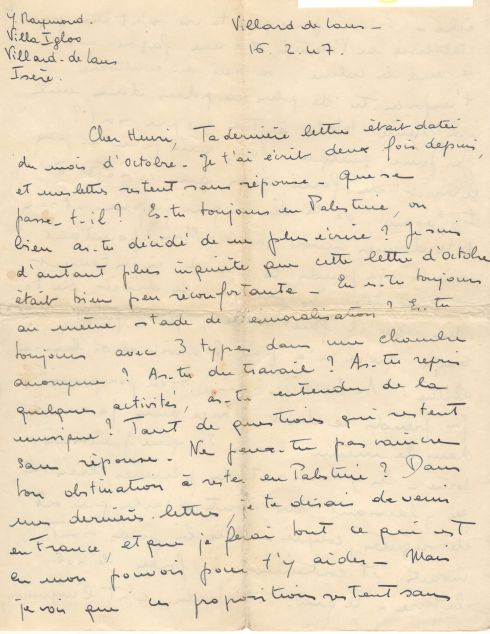 Y. Raymond.
Villa Igloo
Villard-de Lans
Isère.
Villard de Lans -
16. 2. 47.
Cher Henri, Ta dernière lettre était datée
du mois d'Octobre - Je t'ai écrit deux fois depuis,
et mes lettres restent sans réponse - Que se
passe-t-il ? Es-tu toujours en Palestine, ou
bien as-tu décidé de ne plus écrire ? Je suis
d'autant plus inquiète que cette lettre d'Octobre
était bien peu réconfortante - En es-tu toujours
au même stade de démoralisation ? Es-tu
toujours avec 3 types dans une chambre
anonyme ? As-tu du travail ? As-tu repris
quelques activités, as-tu entendu de la
musique ? Tant de questions qui restent
sans réponse - Ne peux-tu pas vaincre
ton obstination à rester en Palestine ? Dans
mes dernières lettres, je te disais de venir
en France, et que je ferai tout ce qui est
en mon pouvoir pour t'y aider - Mais
je vois que ces propositions restent sans